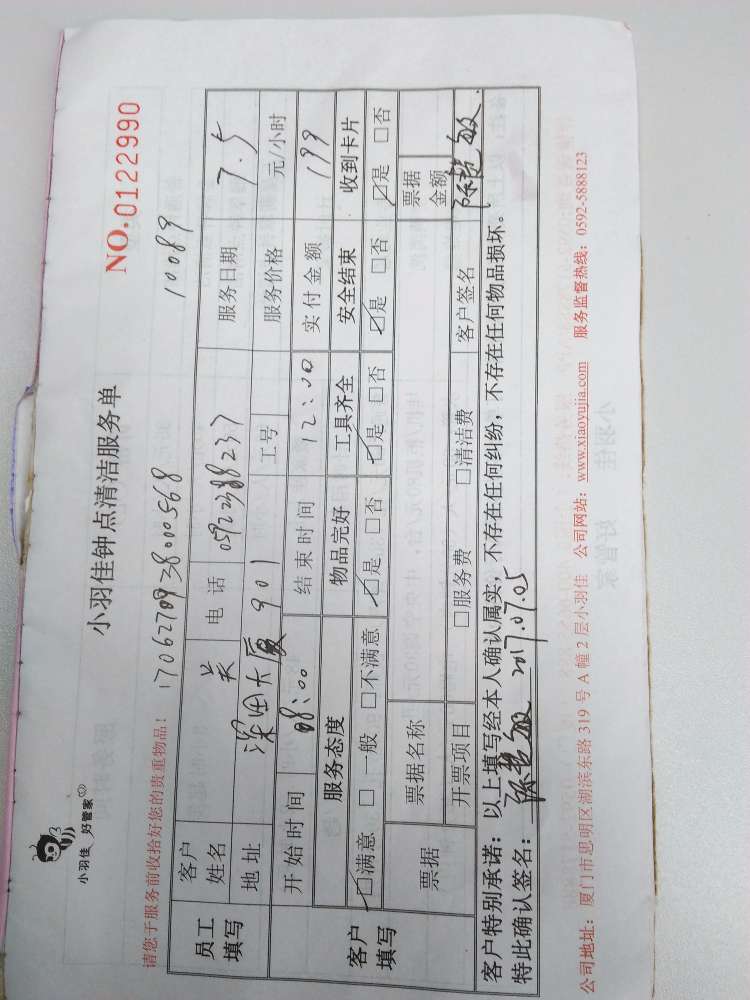 小羽佳 好管家
小羽佳钟点清洁服务单
NO.0122990
请您于服务前收拾好您的贵重物品!
1706270938000568
10089
员工填写
客户姓名 吴 电话 05922388237 服务日期 7.5
地址 深田大厦901 工号 服务价格 元/小时
客户填写
开始时间 08:00 结束时间 12:00 实付金额 199
服务态度 物品完好 工具齐全 安全结束 收到卡片
☑满意 □一般 □不满意 ☑是 □否 ☑是 □否 ☑是 □否 ☑是 □否
票据 票据名称 票据金额
开票项目 □服务费 □清洁费 客户签名 陈艳敏
客户特别承诺:以上填写经本人确认属实,不存在任何纠纷,不存在任何物品损坏。
特此确认签名:陈艳敏 2017.07.05
公司地址:厦门市思明区湖滨东路319号A幢2层小羽佳 公司网站:www.xiaoyujia.com 服务监督热线:0592-5888123